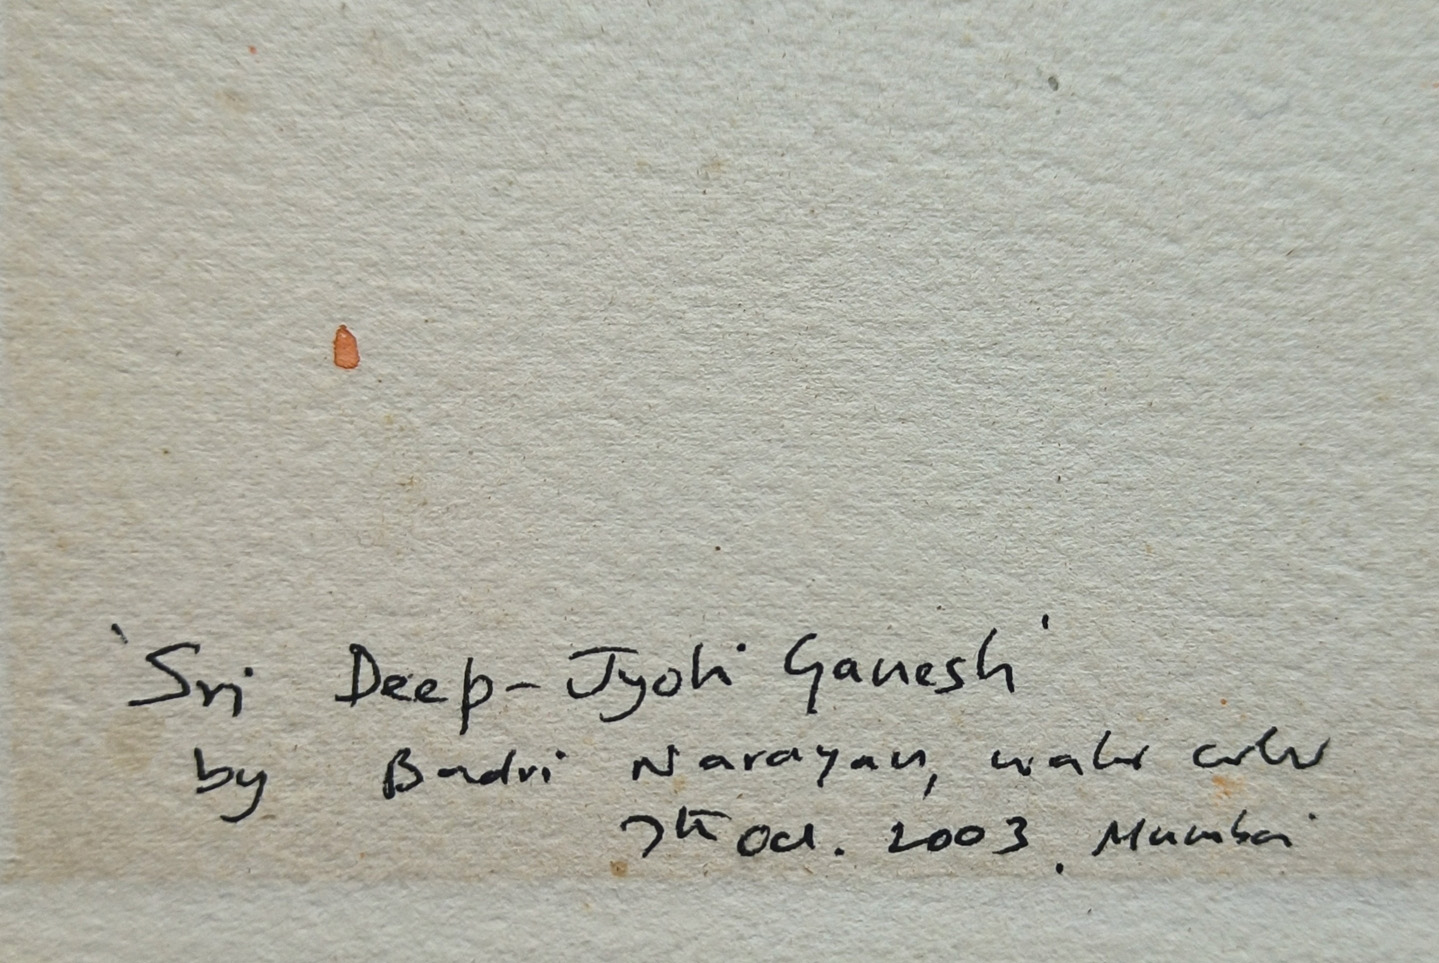 'Sri Deep-Jyoti Ganesh'
by Badri Narayan, water color
7th Oct. 2003. Mumbai